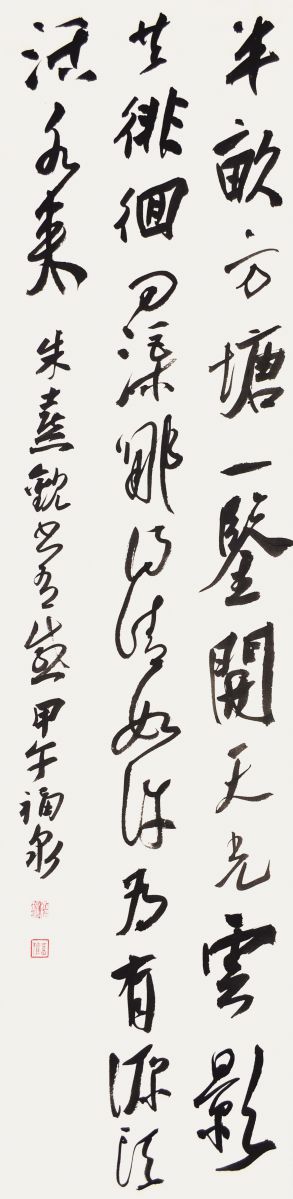 半畝方塘一鑒開天光雲影
共徘徊問渠那得清如許為有源頭
活水來
朱熹觀書有感甲午福泉